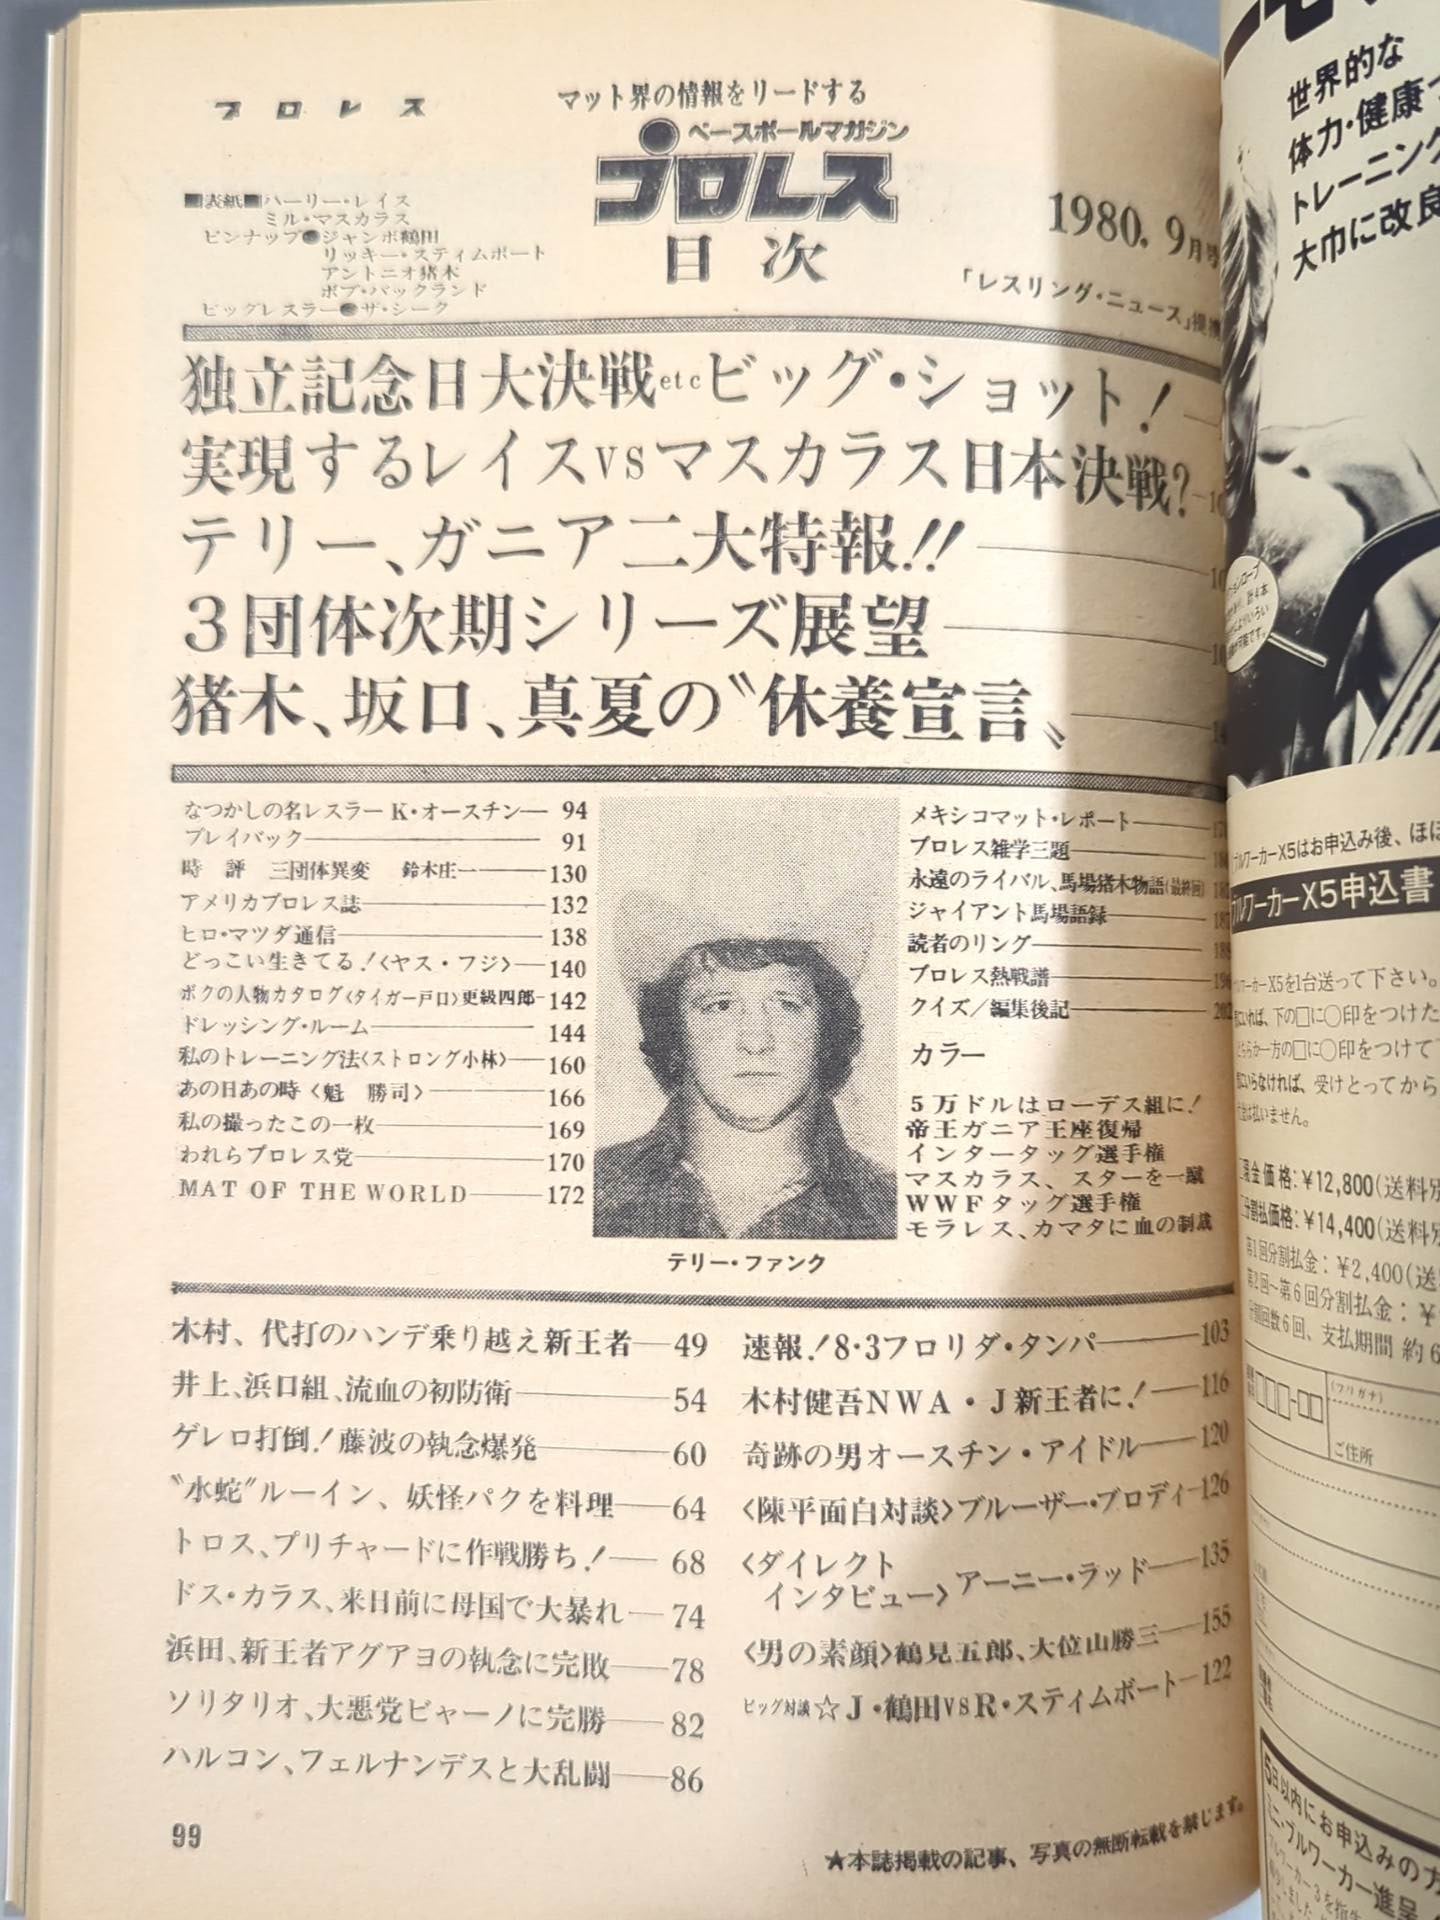 プロレス
マット界の情報をリードする
ベースボールマガジン
プロレス
目次
1980. 9月号
「レスリング・ニュース」提携
■表紙■ハーリー・レイス
ミル・マスカラス
ピンナップ●ジャンボ鶴田
リッキー・スティムボート
アントニオ猪木
ボブ・バックランド
ビッグレスラー●ザ・シーク
独立記念日大決戦etcビッグ・ショット!
実現するレイスvsマスカラス日本決戦?
テリー、ガニア二大特報!!
3団体次期シリーズ展望
猪木、坂口、真夏の〝休養宣言〟
なつかしの名レスラー K・オースチン 94
プレイバック 91
時 評 三団体異変 鈴木庄一 130
アメリカプロレス誌 132
ヒロ・マツダ通信 138
どっこい生きてる!〈ヤス・フジ〉 140
ボクの人物カタログ〈タイガー戸口〉更級四郎 142
ドレッシング・ルーム 144
私のトレーニング法〈ストロング小林〉 160
あの日あの時〈魁 勝司〉 166
私の撮ったこの一枚 169
われらプロレス党 170
MAT OF THE WORLD 172
テリー・ファンク
メキシコマット・レポート
プロレス雑学三題
永遠のライバル、馬場猪木物語(最終回)
ジャイアント馬場語録
読者のリング
プロレス熱戦譜
クイズ/編集後記 202
カラー
5万ドルはローデス組に!
帝王ガニア王座復帰
インタータッグ選手権
マスカラス、スターを一蹴
WWFタッグ選手権
モラレス、カマタに血の制裁
木村、代打のハンデ乗り越え新王者 49
井上、浜口組、流血の初防衛 54
ゲレロ打倒!藤波の執念爆発 60
〝水蛇〟ルーイン、妖怪パクを料理 64
トロス、プリチャードに作戦勝ち! 68
ドス・カラス、来日前に母国で大暴れ 74
浜田、新王者アグアヨの執念に完敗 78
ソリタリオ、大悪党ビャーノに完勝 82
ハルコン、フェルナンデスと大乱闘 86
速報!8・3フロリダ・タンパ 103
木村健吾NWA・J新王者に! 116
奇跡の男オースチン・アイドル 120
〈陳平面白対談〉ブルーザー・ブロディ 126
〈ダイレクト
インタビュー〉アーニー・ラッド 135
〈男の素顔〉鶴見五郎、大位山勝三 155
ビッグ対談☆J・鶴田vsR・スティムボート 122
99
★本誌掲載の記事、写真の無断転載を禁じます。
世界的な
体力・健康
トレーニング
大巾に改良
ブルワーカーX5はお申込み後、ほほ
ブルワーカーX5申込書
ブルワーカーX5を1台送って下さい。
下の□に○印をつけた
どちらか一方の□に○印をつけて
受けとってから
払いません。
現金価格:¥12,800(送料別
分割払価格:¥14,400(送料別
第1回分割払金:¥2,400(送
第2回~第6回分割払金:¥
分割回数6回、支払期間 約6
(フリガナ)
ご住所
5日以内にお申込みの方
ミニ・ブルワーカー進呈